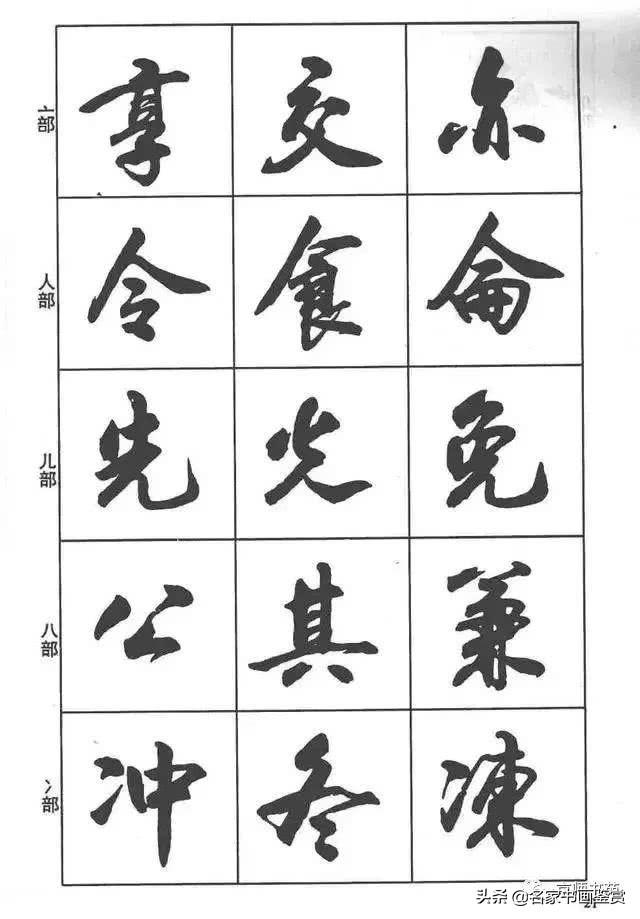 亠部 享 交 亦
人部 令 食 侖
儿部 先 光 免
八部 公 其 兼
冫部 冲 冬 凍
21
头条 @名家书画鉴赏